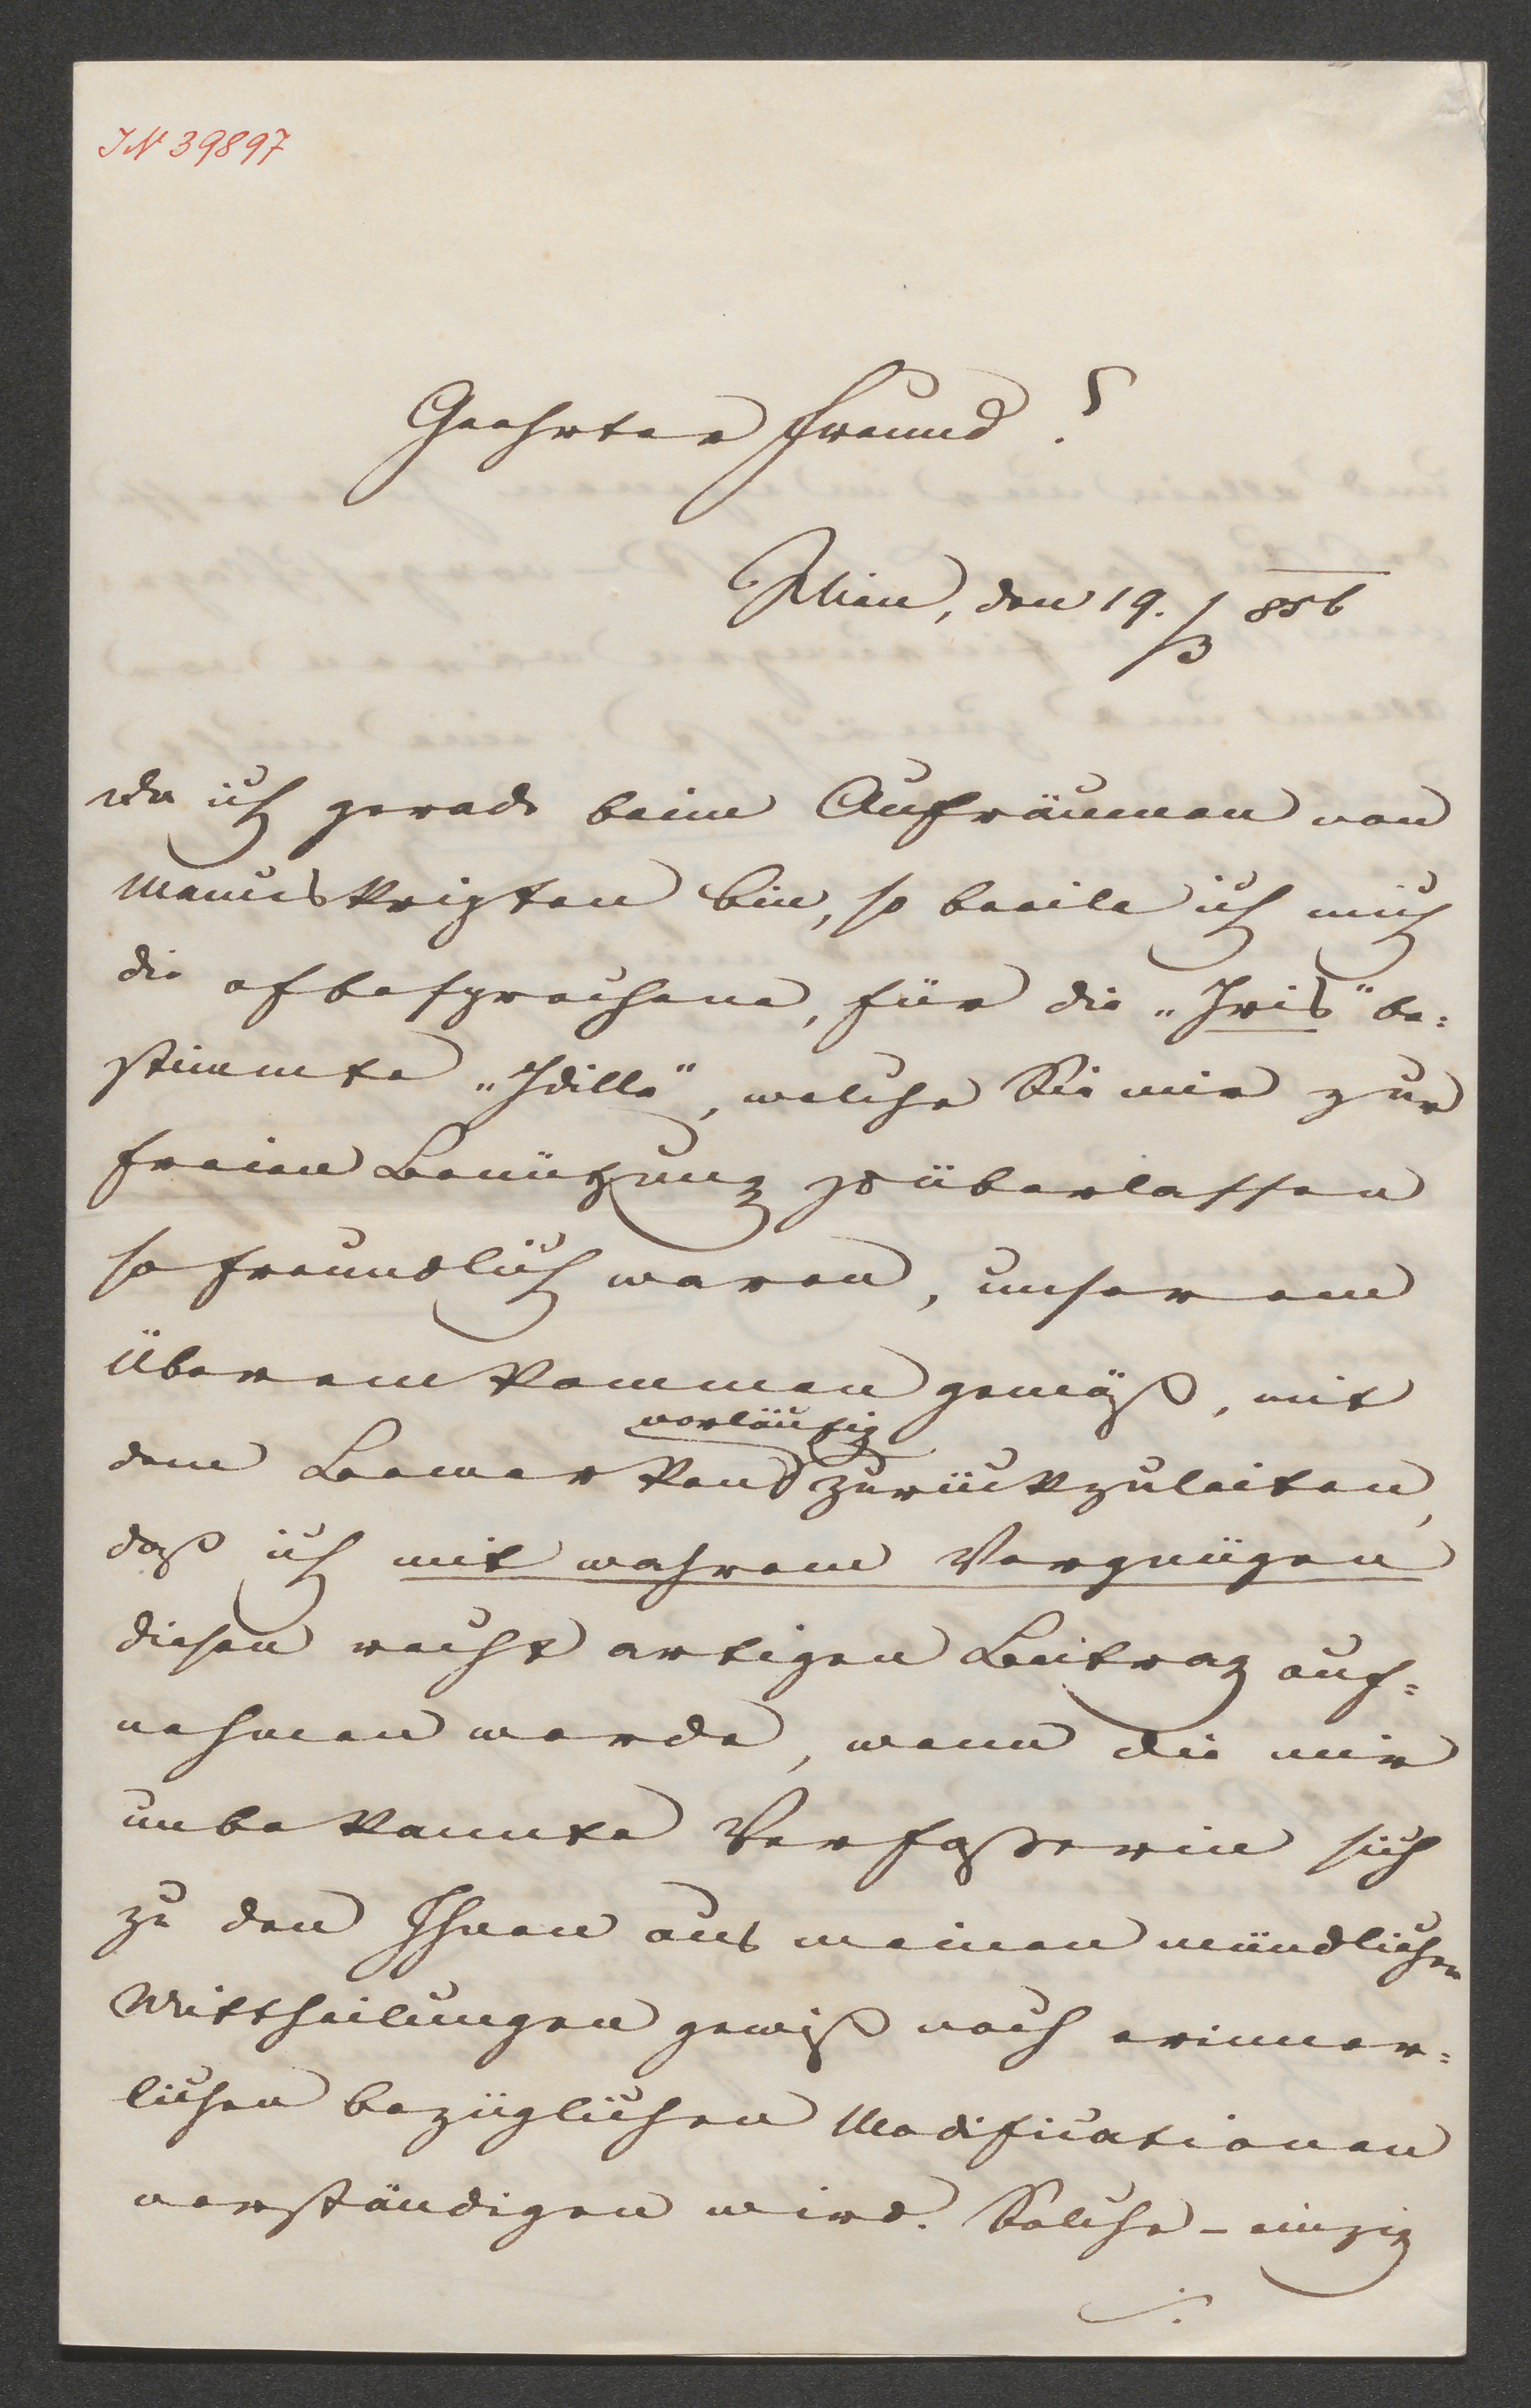 IN 39897
Geehrter Freund!
Wien, den 19./3 856
Da ich gerade beim Aufräumen von
Manuskripten bin, so beeile ich mich
die ofbesprochene, für die „Iris" be=
stimmte „Idille", welche Sie mir zur
freien Benützung zu überlassen
so freundlich waren, unserem
Übereinkommen gemäß, mit
dem Bemerken vorläufig zurückzuleiten,
daß ich mit wahrem Vergnügen
diesen recht artigen Beitrag auf=
nehmen werde, wenn die mir
unbekannte Verfaßerin sich
zu den Ihnen aus meinen mündlichen
Mittheilungen gewiß noch erinner=
lichen bezüglichen Modificationen
verständigen wird. Solche – einzig
./.